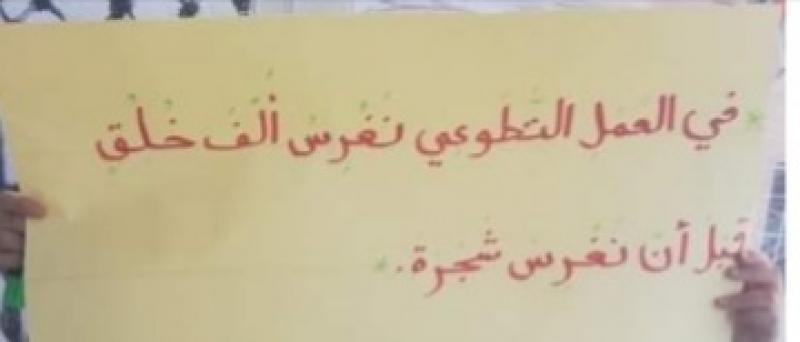 في العمل التطوعي نغرس ألف خلق
قبل أن نغرس شجرة.